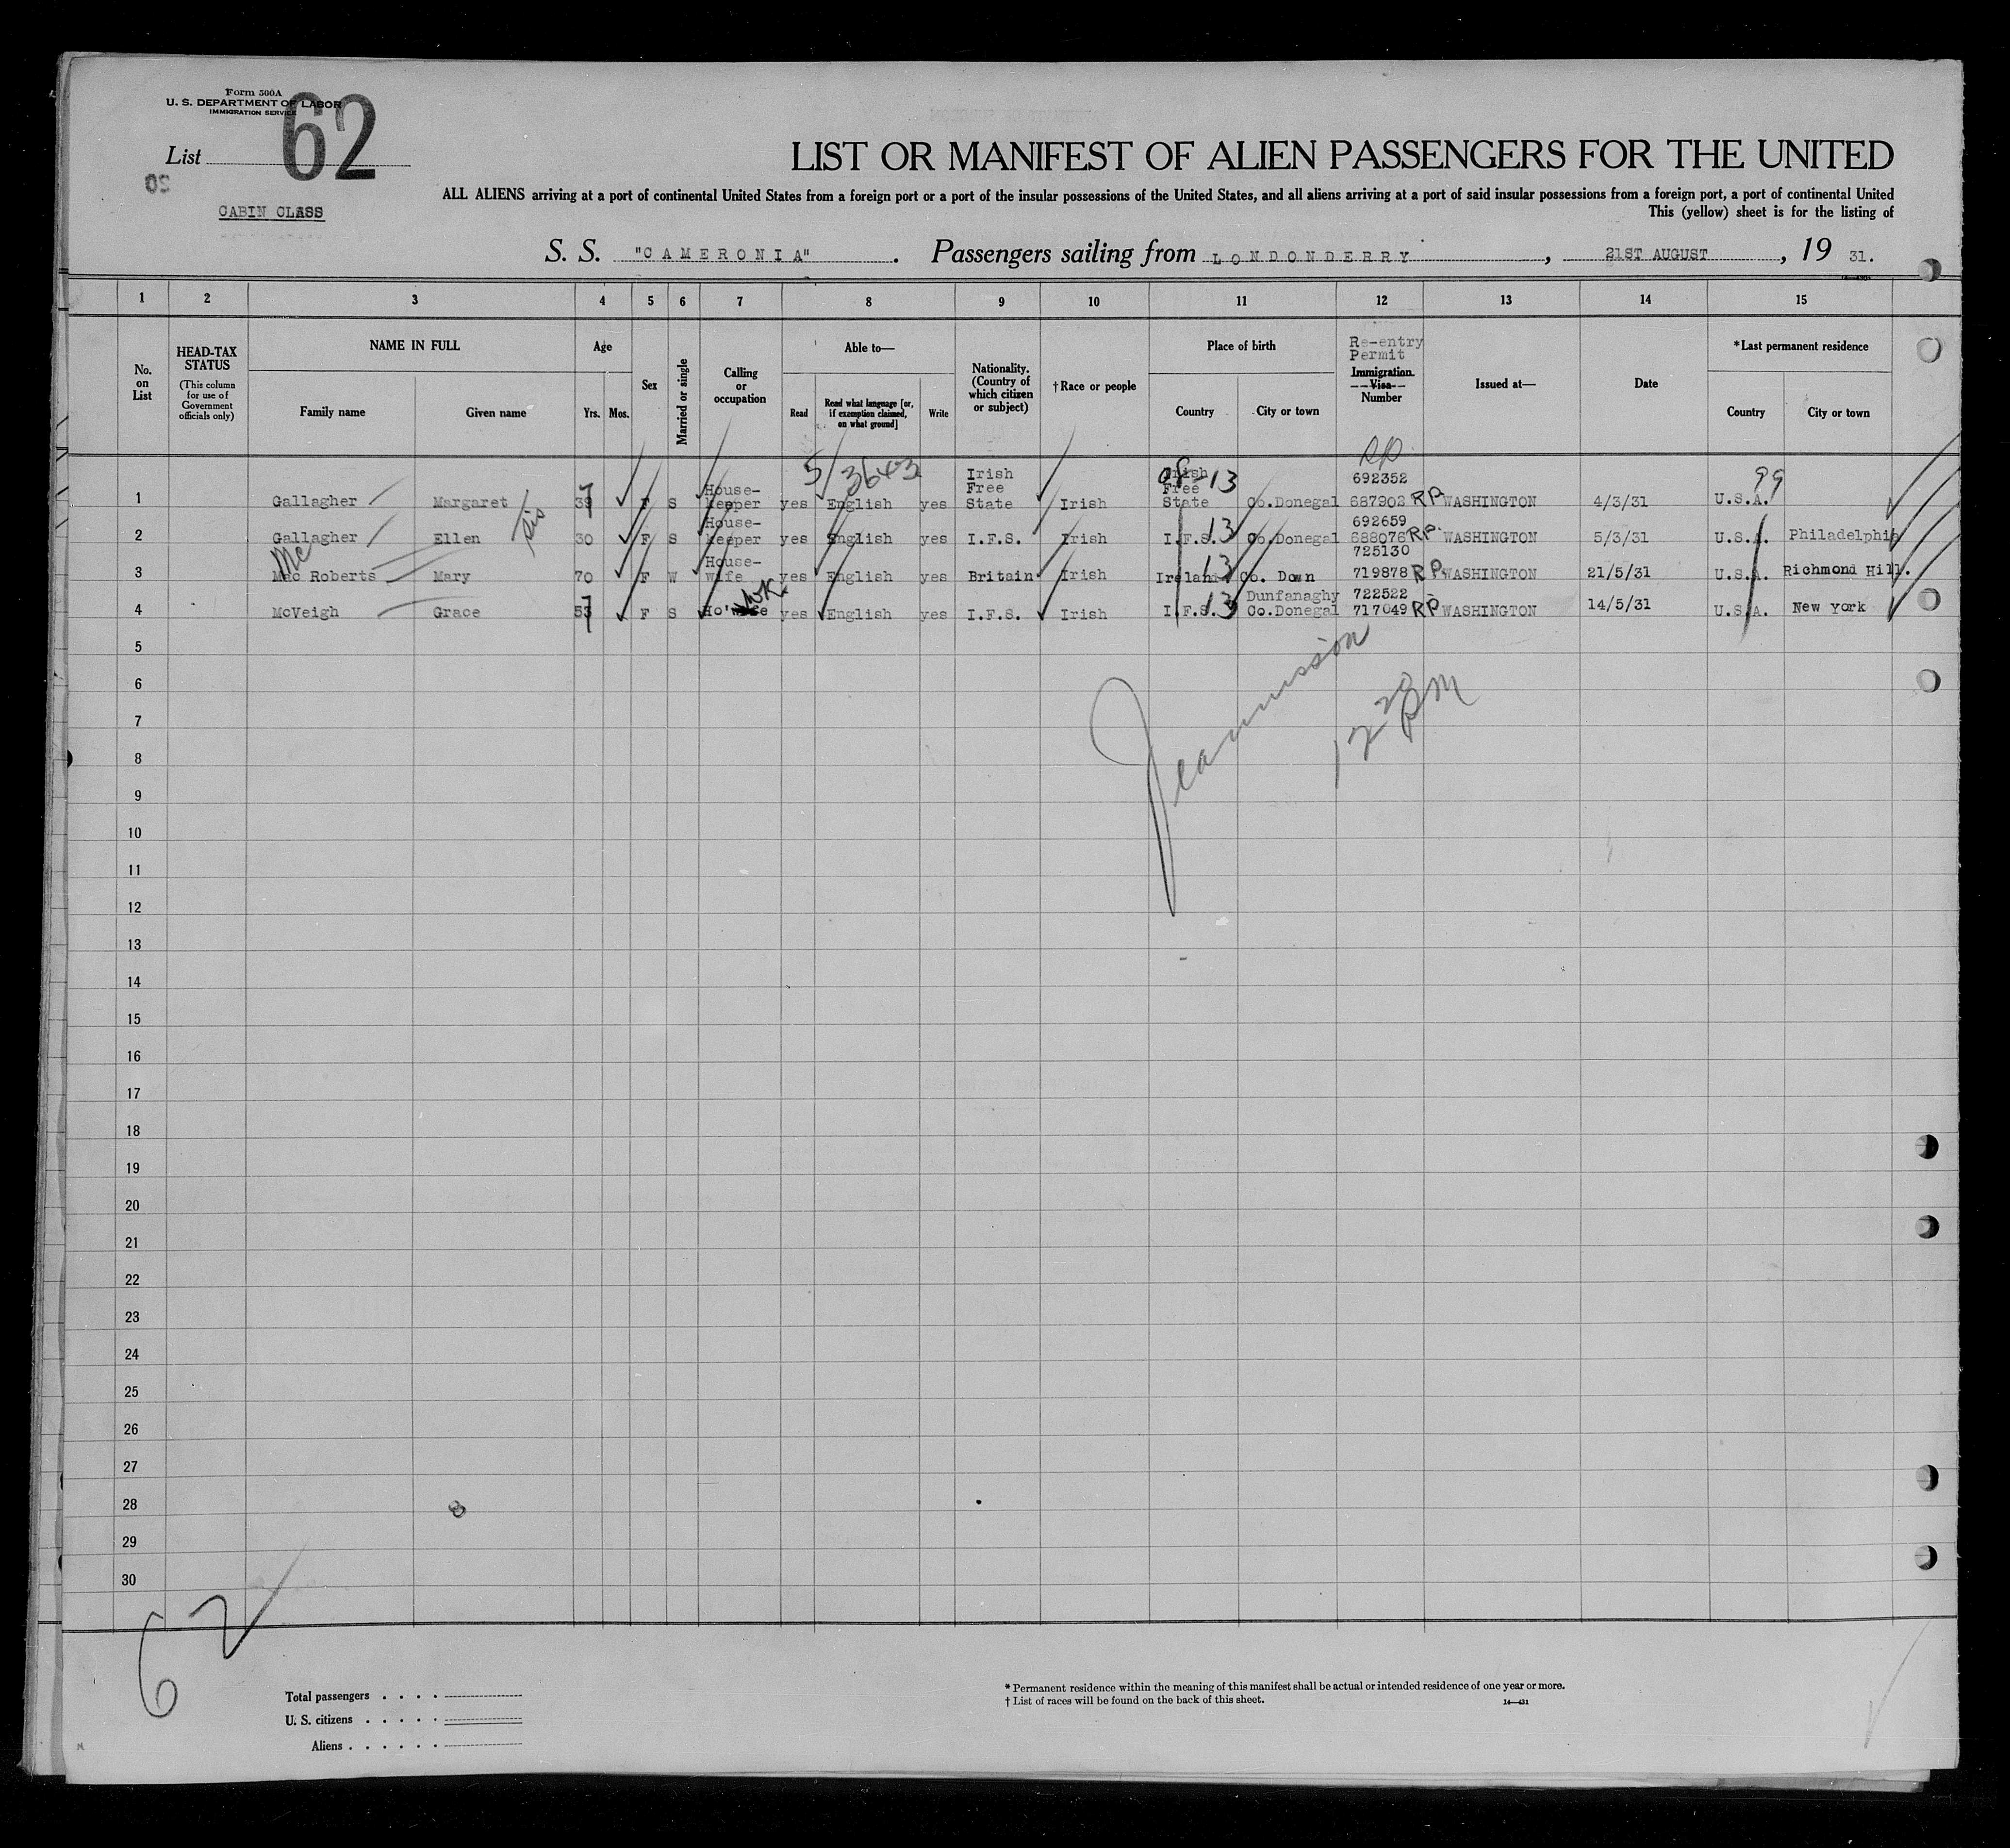 Form 500A
U. S. DEPARTMENT OF LABOR
IMMIGRATION SERVICE
List 62
CABIN CLASS
LIST OR MANIFEST OF ALIEN PASSENGERS FOR THE UNITED
ALL ALIENS arriving at a port of continental United States from a foreign port or a port of the insular possessions of the United States, and all aliens arriving at a port of said insular possessions from a foreign port, a port of continental United
This (yellow) sheet is for the listing of
S. S. "CAMERONIA". Passengers sailing from LONDONDERRY, 21ST AUGUST, 19 31.
1 2 3 4 5 6 7 8 9 10 11 12 13 14 15
No. on List
HEAD-TAX STATUS
(This column for use of Government officials only)
NAME IN FULL
Family name Given name
Age
Yrs. Mos.
Sex
Married or single
Calling or occupation
Able to—
Read Read what language [or, if exemption claimed, on what ground] Write
Nationality. (Country of which citizen or subject)
†Race or people
Place of birth
Country City or town
Re-entry Permit
Immigration Visa Number
Issued at—
Date
*Last permanent residence
Country City or town
RP
5/3643
99
1 Gallagher Margaret 39 F S House-keeper yes English yes Irish Free State Irish Irish Free State Co.Donegal 692352 687902 RP WASHINGTON 4/3/31 U.S.A.
sis
2 Gallagher Ellen 30 F S House-keeper yes English yes I.F.S. Irish I.F.S. 13 Co.Donegal 692659 688076 RP WASHINGTON 5/3/31 U.S.A. Philadelphia
Mc
3 Mac Roberts Mary 70 F W House-wife yes English yes Britain Irish Ireland 13 Co. Down 725130 719878 RP WASHINGTON 21/5/31 U.S.A. Richmond Hill.
4 McVeigh Grace 53 F S Ho'wife wk yes English yes I.F.S. Irish I.F.S. 13 Dunfanaghy Co.Donegal 722522 717049 RP WASHINGTON 14/5/31 U.S.A. New York
5
6
7
12 20 PM
8
9
10
11
12
13
14
15
16
17
18
19
20
21
22
23
24
25
26
27
28
29
30
62
Total passengers . . . .
U. S. citizens . . . . .
Aliens . . . . . .
* Permanent residence within the meaning of this manifest shall be actual or intended residence of one year or more.
† List of races will be found on the back of this sheet.
14—431